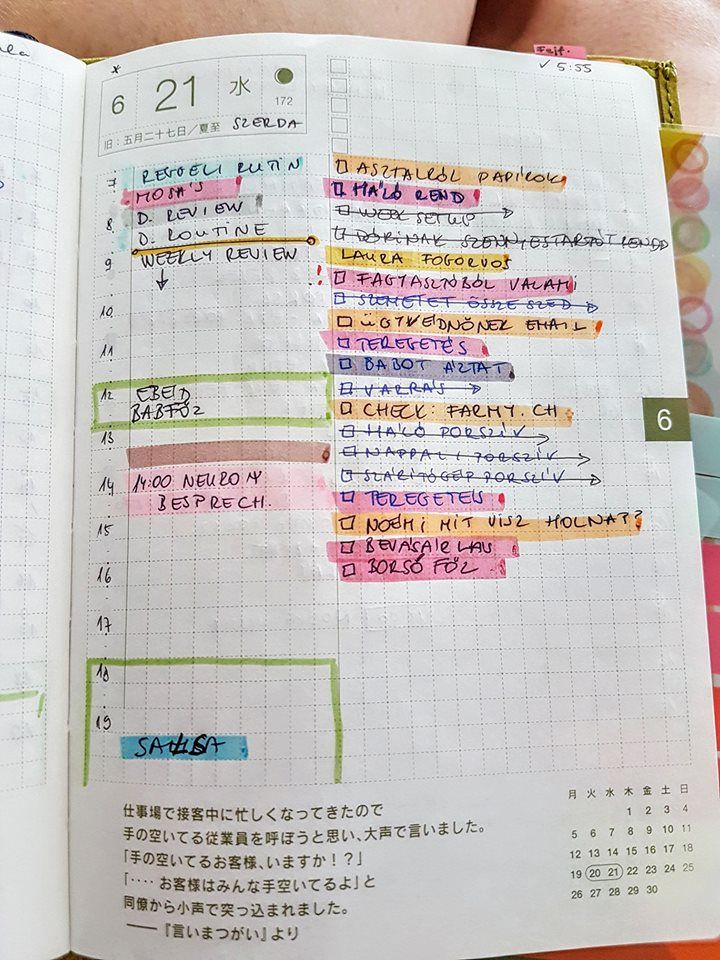 Fejf.
✓ 5:55
*
6 21 水
172
旧:五月二十七日/夏至 SZERDA
7 REGGELI RUTIN
MOSÁS
8 D. REVIEW
D. ROUTINE
9 WEEKLY REVIEW
↓
10
11
12 EBÉD
BABFŐZ
13
14 14:00 NEURONY
BESPRECH.
15
16
17
18
19
SALSA
ASZTALRÓL PAPÍROK
HÁLÓ REND
WEEK SETUP
DÓRINAK SZENNYESTARTÓT REND
LAURA FOGORVOS
! FAGYASZTÓBÓL VALAMI
SZEMETET ÖSSZE SZED
ÜGYVÉDNŐNEK EMAIL
TEREGETÉS
BABOT ÁZTAT
VARRÁS
CHECK: FARMY.CH
HÁLÓ PORSZÍV
NAPPALI PORSZÍV
SZÁRÍTÓGÉP PORSZÍV
TEREGETÉS
NOÉMI MIT VISZ HOLNAP?
BEVÁSÁRLÁS
BORSÓ FŐZ
6
仕事場で接客中に忙しくなってきたので
手の空いてる従業員を呼ぼうと思い、大声で言いました。
「手の空いてるお客様、いますか!?」
「‥‥ お客様はみんな手空いてるよ」と
同僚から小声で突っ込まれました。
——『言いまつがい』より
月 火 水 木 金 土 日
1 2 3 4
5 6 7 8 9 10 11
12 13 14 15 16 17 18
19 20 21 22 23 24 25
26 27 28 29 30